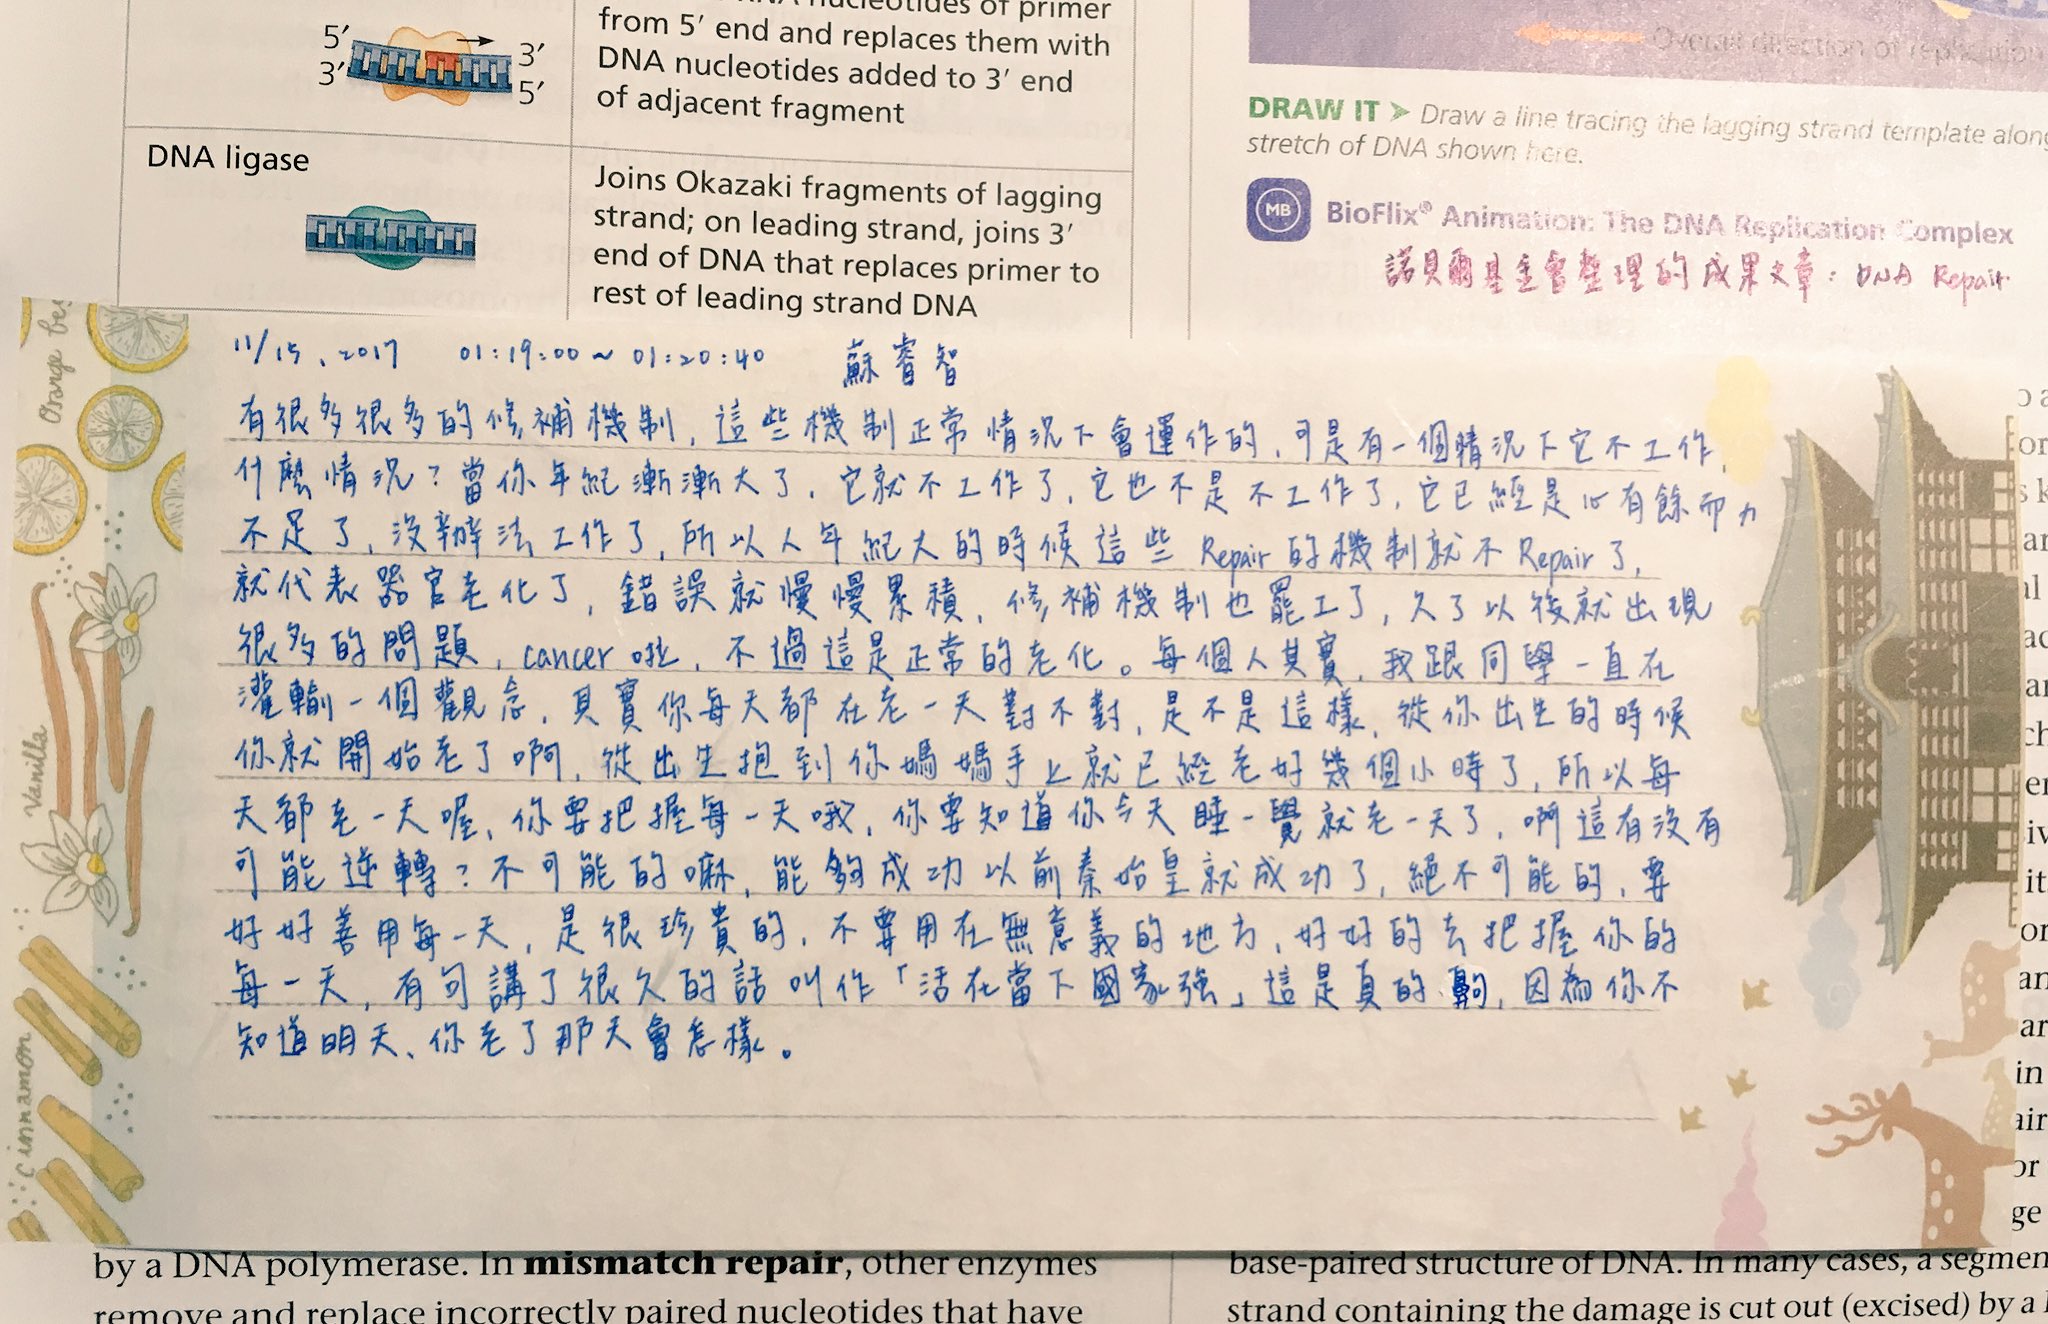 nucleotides of primer
from 5′ end and replaces them with
DNA nucleotides added to 3′ end
of adjacent fragment
5′
3′
3′
5′
DNA ligase
Joins Okazaki fragments of lagging
strand; on leading strand, joins 3′
end of DNA that replaces primer to
rest of leading strand DNA
Overall direction of replication
DRAW IT ➤ Draw a line tracing the lagging strand template along
stretch of DNA shown here.
MB BioFlix® Animation: The DNA Replication Complex
諾貝爾基金會整理的成果文章：DNA Repair
11/15, 2017 01:19:00~01:20:40 蘇睿智
有很多很多的修補機制,這些機制正常情況下會運作的,可是有一個情況下它不工作,
什麼情況?當你年紀漸漸大了,它就不工作了,它也不是不工作了,它已經是心有餘而力
不足了,沒辦法工作了,所以人年紀大的時候這些Repair的機制就不Repair了,
就代表器官老化了,錯誤就慢慢累積,修補機制也罷工了,久了以後就出現
很多的問題,cancer啦,不過這是正常的老化。每個人其實,我跟同學一直在
灌輸一個觀念,其實你每天都在老一天對不對,是不是這樣,從你出生的時候
你就開始老了啊,從出生抱到你媽媽手上就已經老好幾個小時了,所以每
天都老一天喔、你要把握每一天哦,你要知道你今天睡一覺就老一天了,啊這有沒有
可能逆轉?不可能的嘛,能夠成功以前秦始皇就成功了,絕不可能的,要
好好善用每一天,是很珍貴的,不要用在無意義的地方,好好的去把握你的
每一天,有句講了很久的話叫作「活在當下國家強」這是真的,因為你不
知道明天、你老了那天會怎樣。
Orange
Vanilla
Cinnamon
by a DNA polymerase. In mismatch repair, other enzymes
remove and replace incorrectly paired nucleotides that have
base-paired structure of DNA. In many cases, a segmen
strand containing the damage is cut out (excised) by a